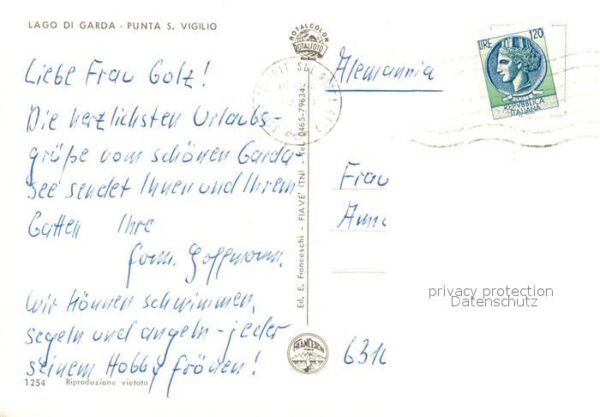 LAGO DI GARDA - PUNTA S. VIGILIO
Liebe Frau Golz!
Die herzlichsten Urlaubs-
grüße vom schönen Garda-
see sendet Ihnen und Ihrem
Gatten Ihre
Fam. Hoffmann.
Wir können schwimmen,
segeln und angeln - jeder
seinem Hobby frönen!
1254 Riproduzione vietata
ROTALCOLOR
ROTALFOTO
Ed. E. Franceschi - FIAVE' (TN) - Tel. 0465-79634
FRANCESCHI
Alemannia
LIRE 120
REPUBBLICA
ITALIANA
Frau
Anna
privacy protection
Datenschutz
6310